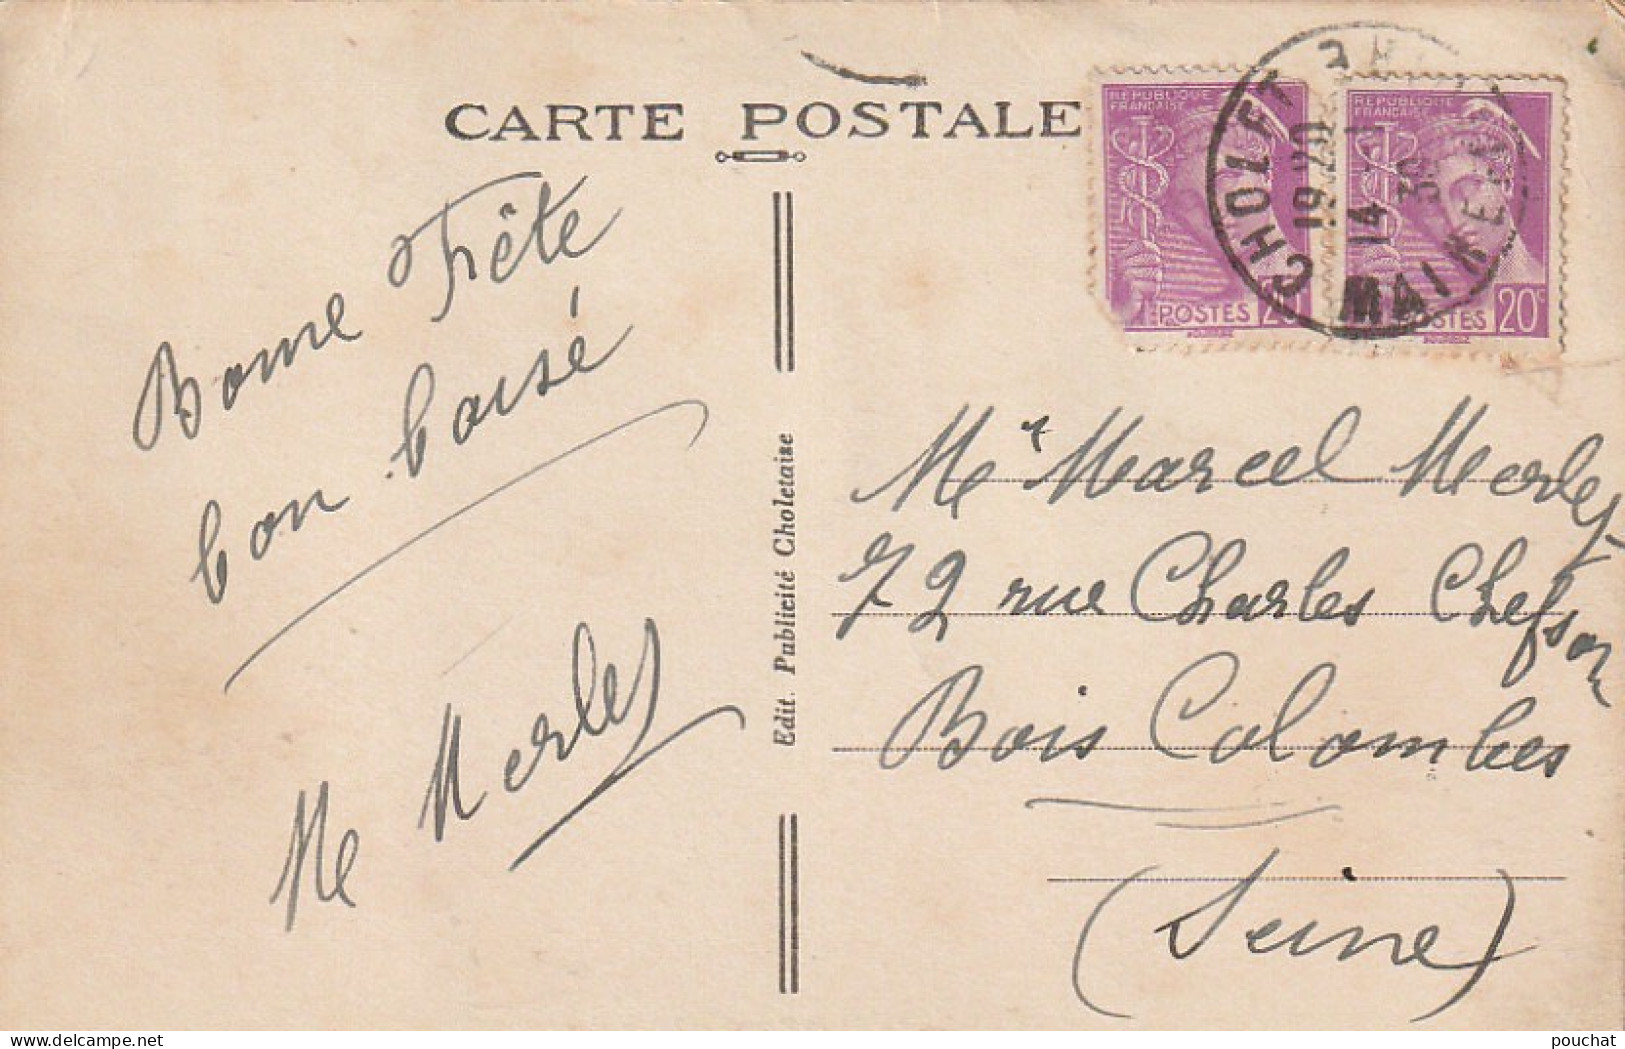 CARTE POSTALE
REPUBLIQUE
FRANÇAISE
POSTES 2
REPUBLIQUE
FRANÇAISE
POSTES 20c
CHOLET
19 20
14
MAINE
Bonne Fête
bon baisé
Me Merley
Edit. Publicité Choletaise
Mr Marcel Merley
72 rue Charles Chefson
Bois Colombes
(Seine)
pouchat